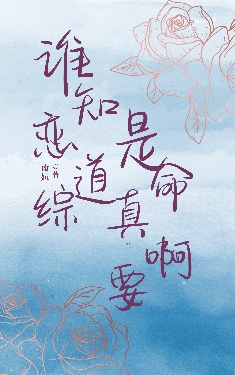 谁知道
恋综
是真要
命啊